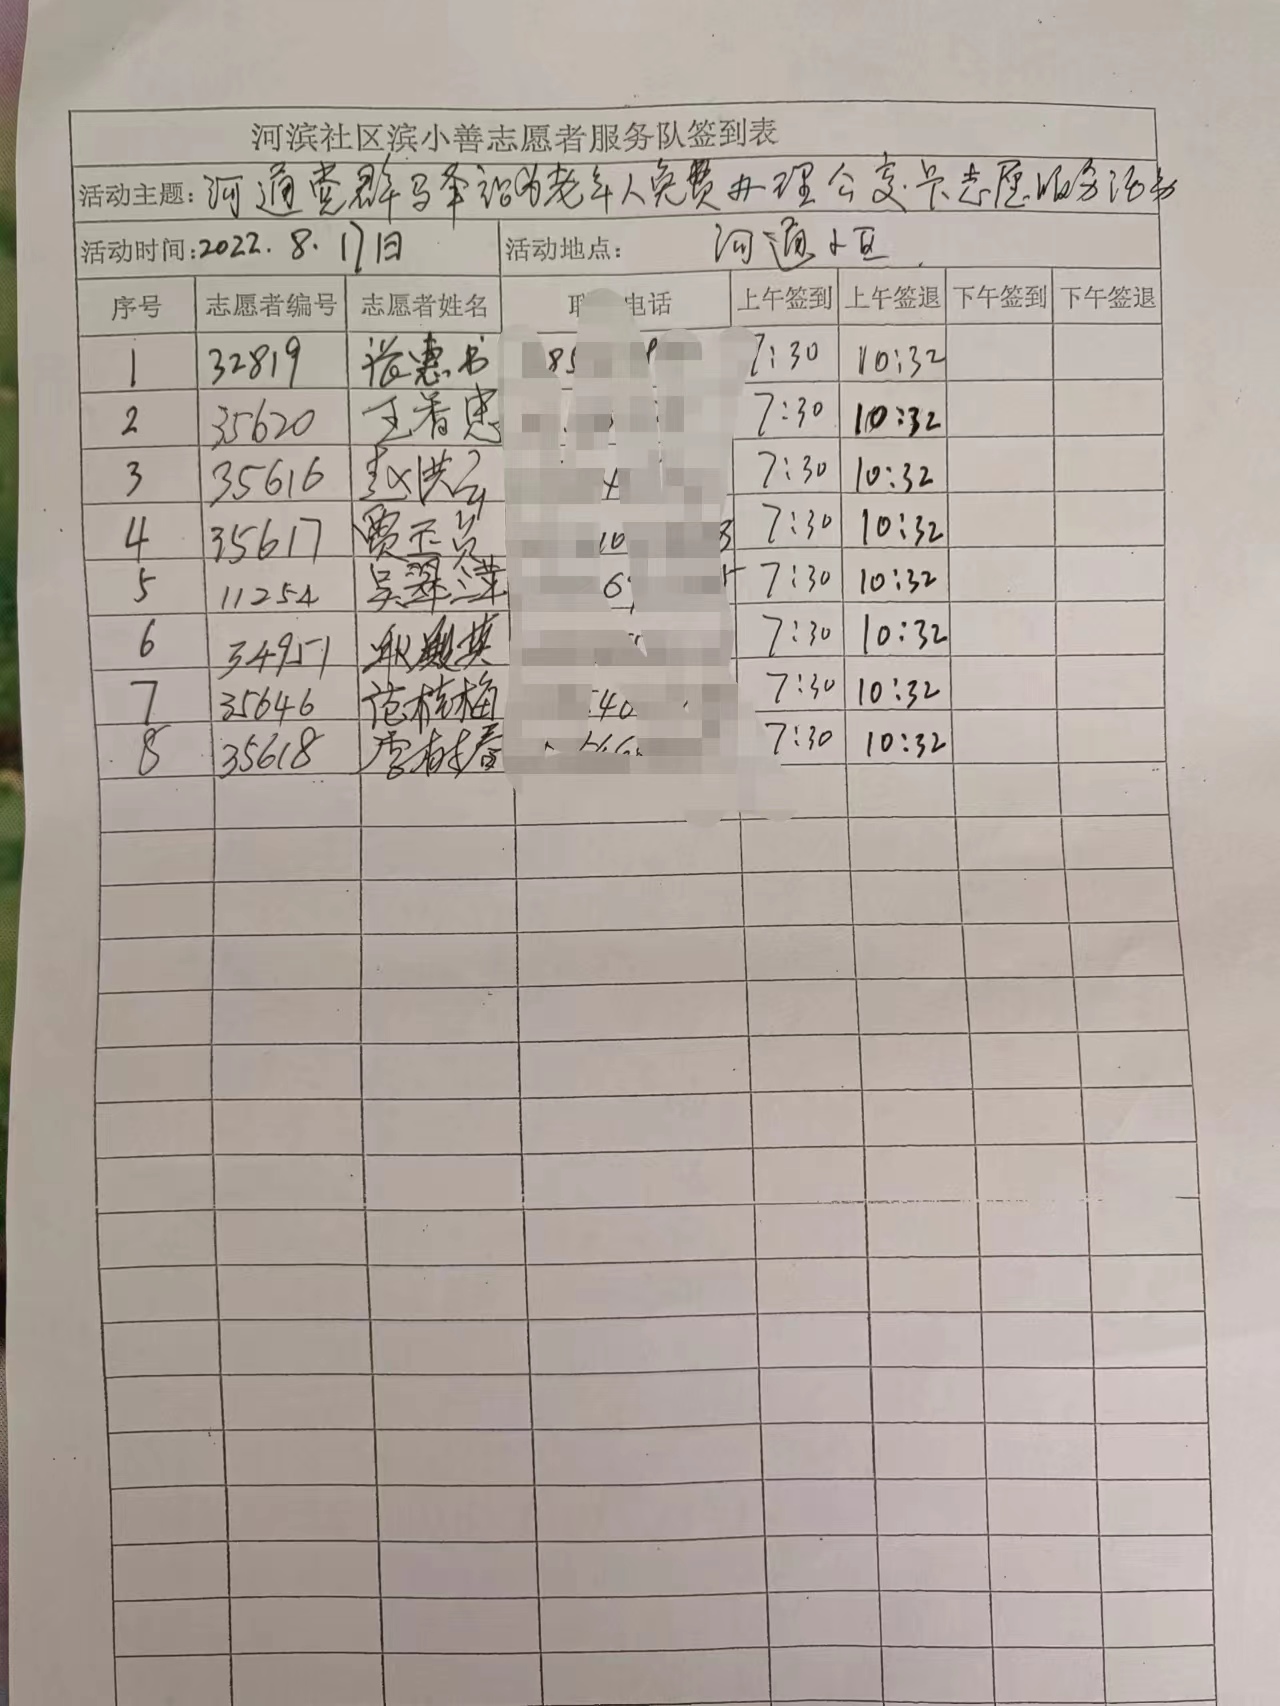 河滨社区滨小善志愿者服务队签到表
活动主题：河通党群驿站为老年人免费办理公交卡志愿服务活动
活动时间：2022.8.17日 活动地点： 河通小区
序号 志愿者编号 志愿者姓名 电话 上午签到 上午签退 下午签到 下午签退
1 32819 张惠书 7:30 10:32
2 35620 王香忠 7:30 10:32
3 35616 赵洪 7:30 10:32
4 35617 贾玉 7:30 10:32
5 11254 吴翠 7:30 10:32
6 34951 7:30 10:32
7 35646 范桂梅 7:30 10:32
8 35618 李春 7:30 10:32